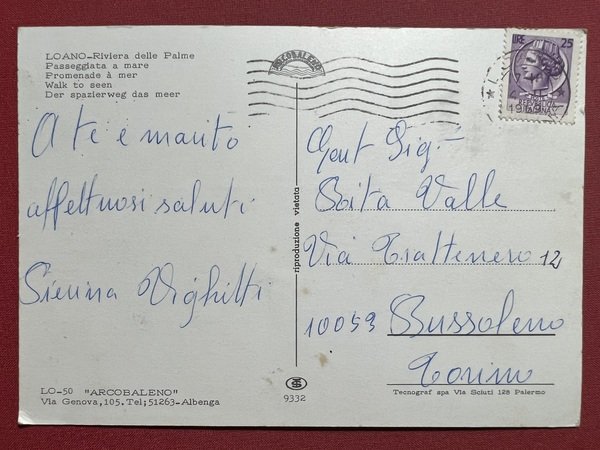 LOANO-Riviera delle Palme
Passeggiata a mare
Promenade à mer
Walk to seen
Der spazierweg das meer
ARCOBALENO
LIRE 25
1969
A te e marito
affettuosi saluti
Sierina Vighitti
Gent Sig.
Rita Valle
Via Trattenero 12
10053 Bussoleno
Torino
riproduzione vietata
LO-50 "ARCOBALENO"
Via Genova,105.Tel;51263-Albenga
9332
Tecnograf spa Via Sciuti 128 Palermo